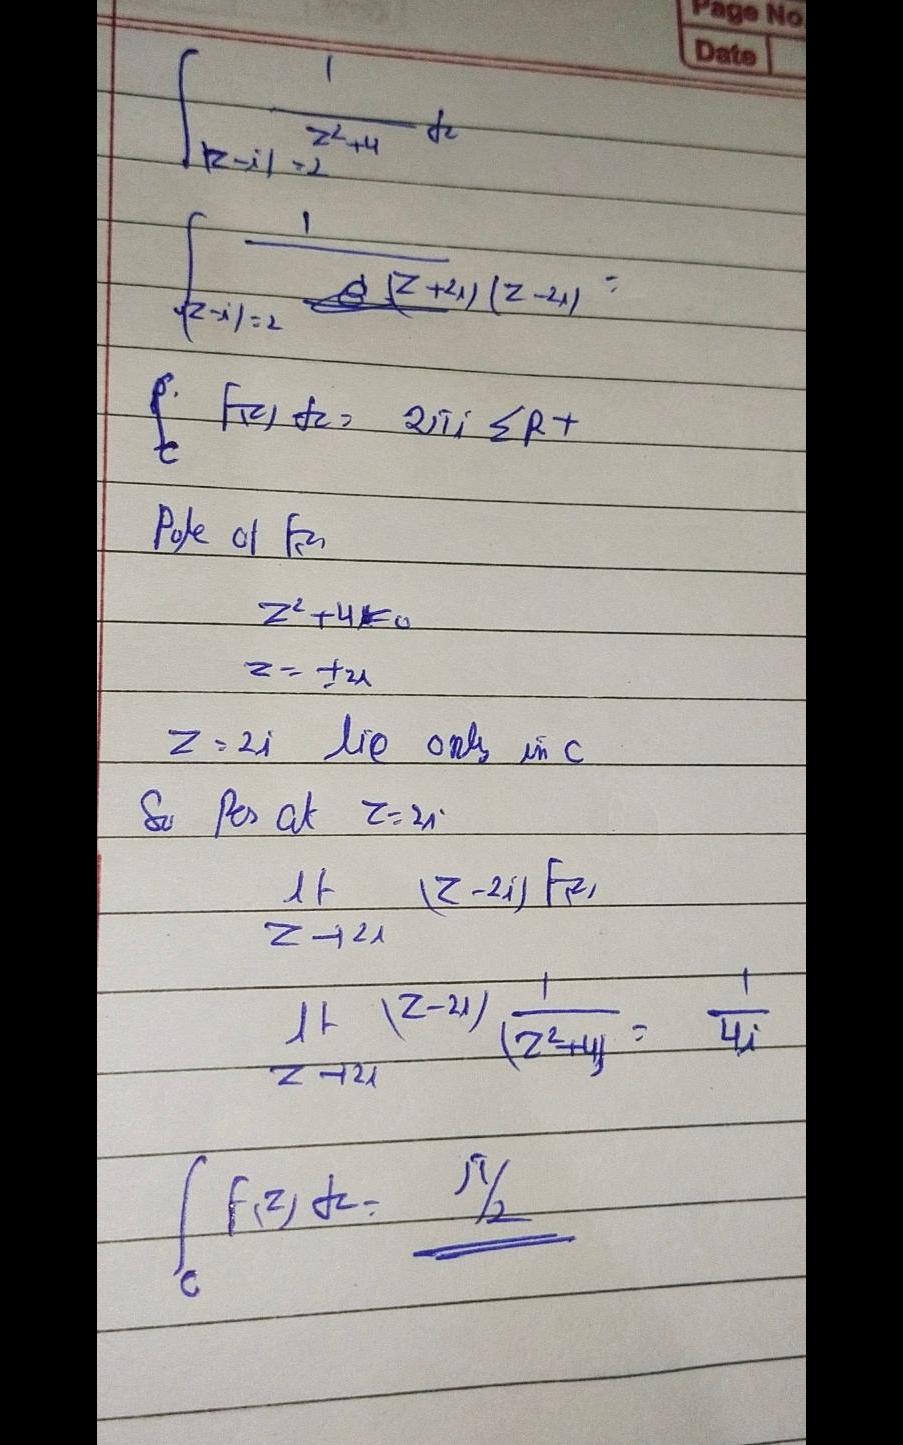 Page No
Date
∫ 1/(z²+4) dz
|z-i|=2
∫ 1/((z+2i)(z-2i)) =
|z-i|=2
∮ F(z) dz = 2πi ΣR+
c
Pole of F(z)
z²+4=0
z= ±2i
z=2i lie only in c
So Res at z=2i
lt (z-2i) F(z)
z→2i
lt (z-2i) 1/(z²+4) = 1/4i
z→2i
∫ F(z) dz = π/2
c